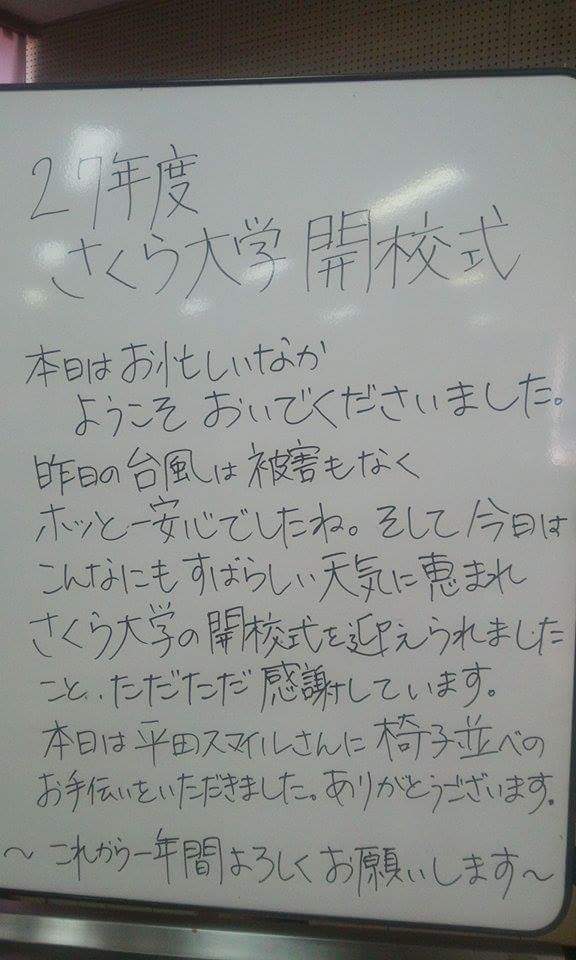 27年度
さくら大学 開校式
本日は お忙しいなか
ようこそ おいでくださいました。
昨日の 台風は 被害もなく
ホッと一安心でしたね。そして 今日は
こんなにも すばらしい 天気に 恵まれ
さくら大学の 開校式を 迎えられました
こと、ただただ 感謝しています。
本日は 平田スマイルさんに 椅子並べの
お手伝いをいただきました。ありがとうございます。
～ これから一年間 よろしく お願いします～